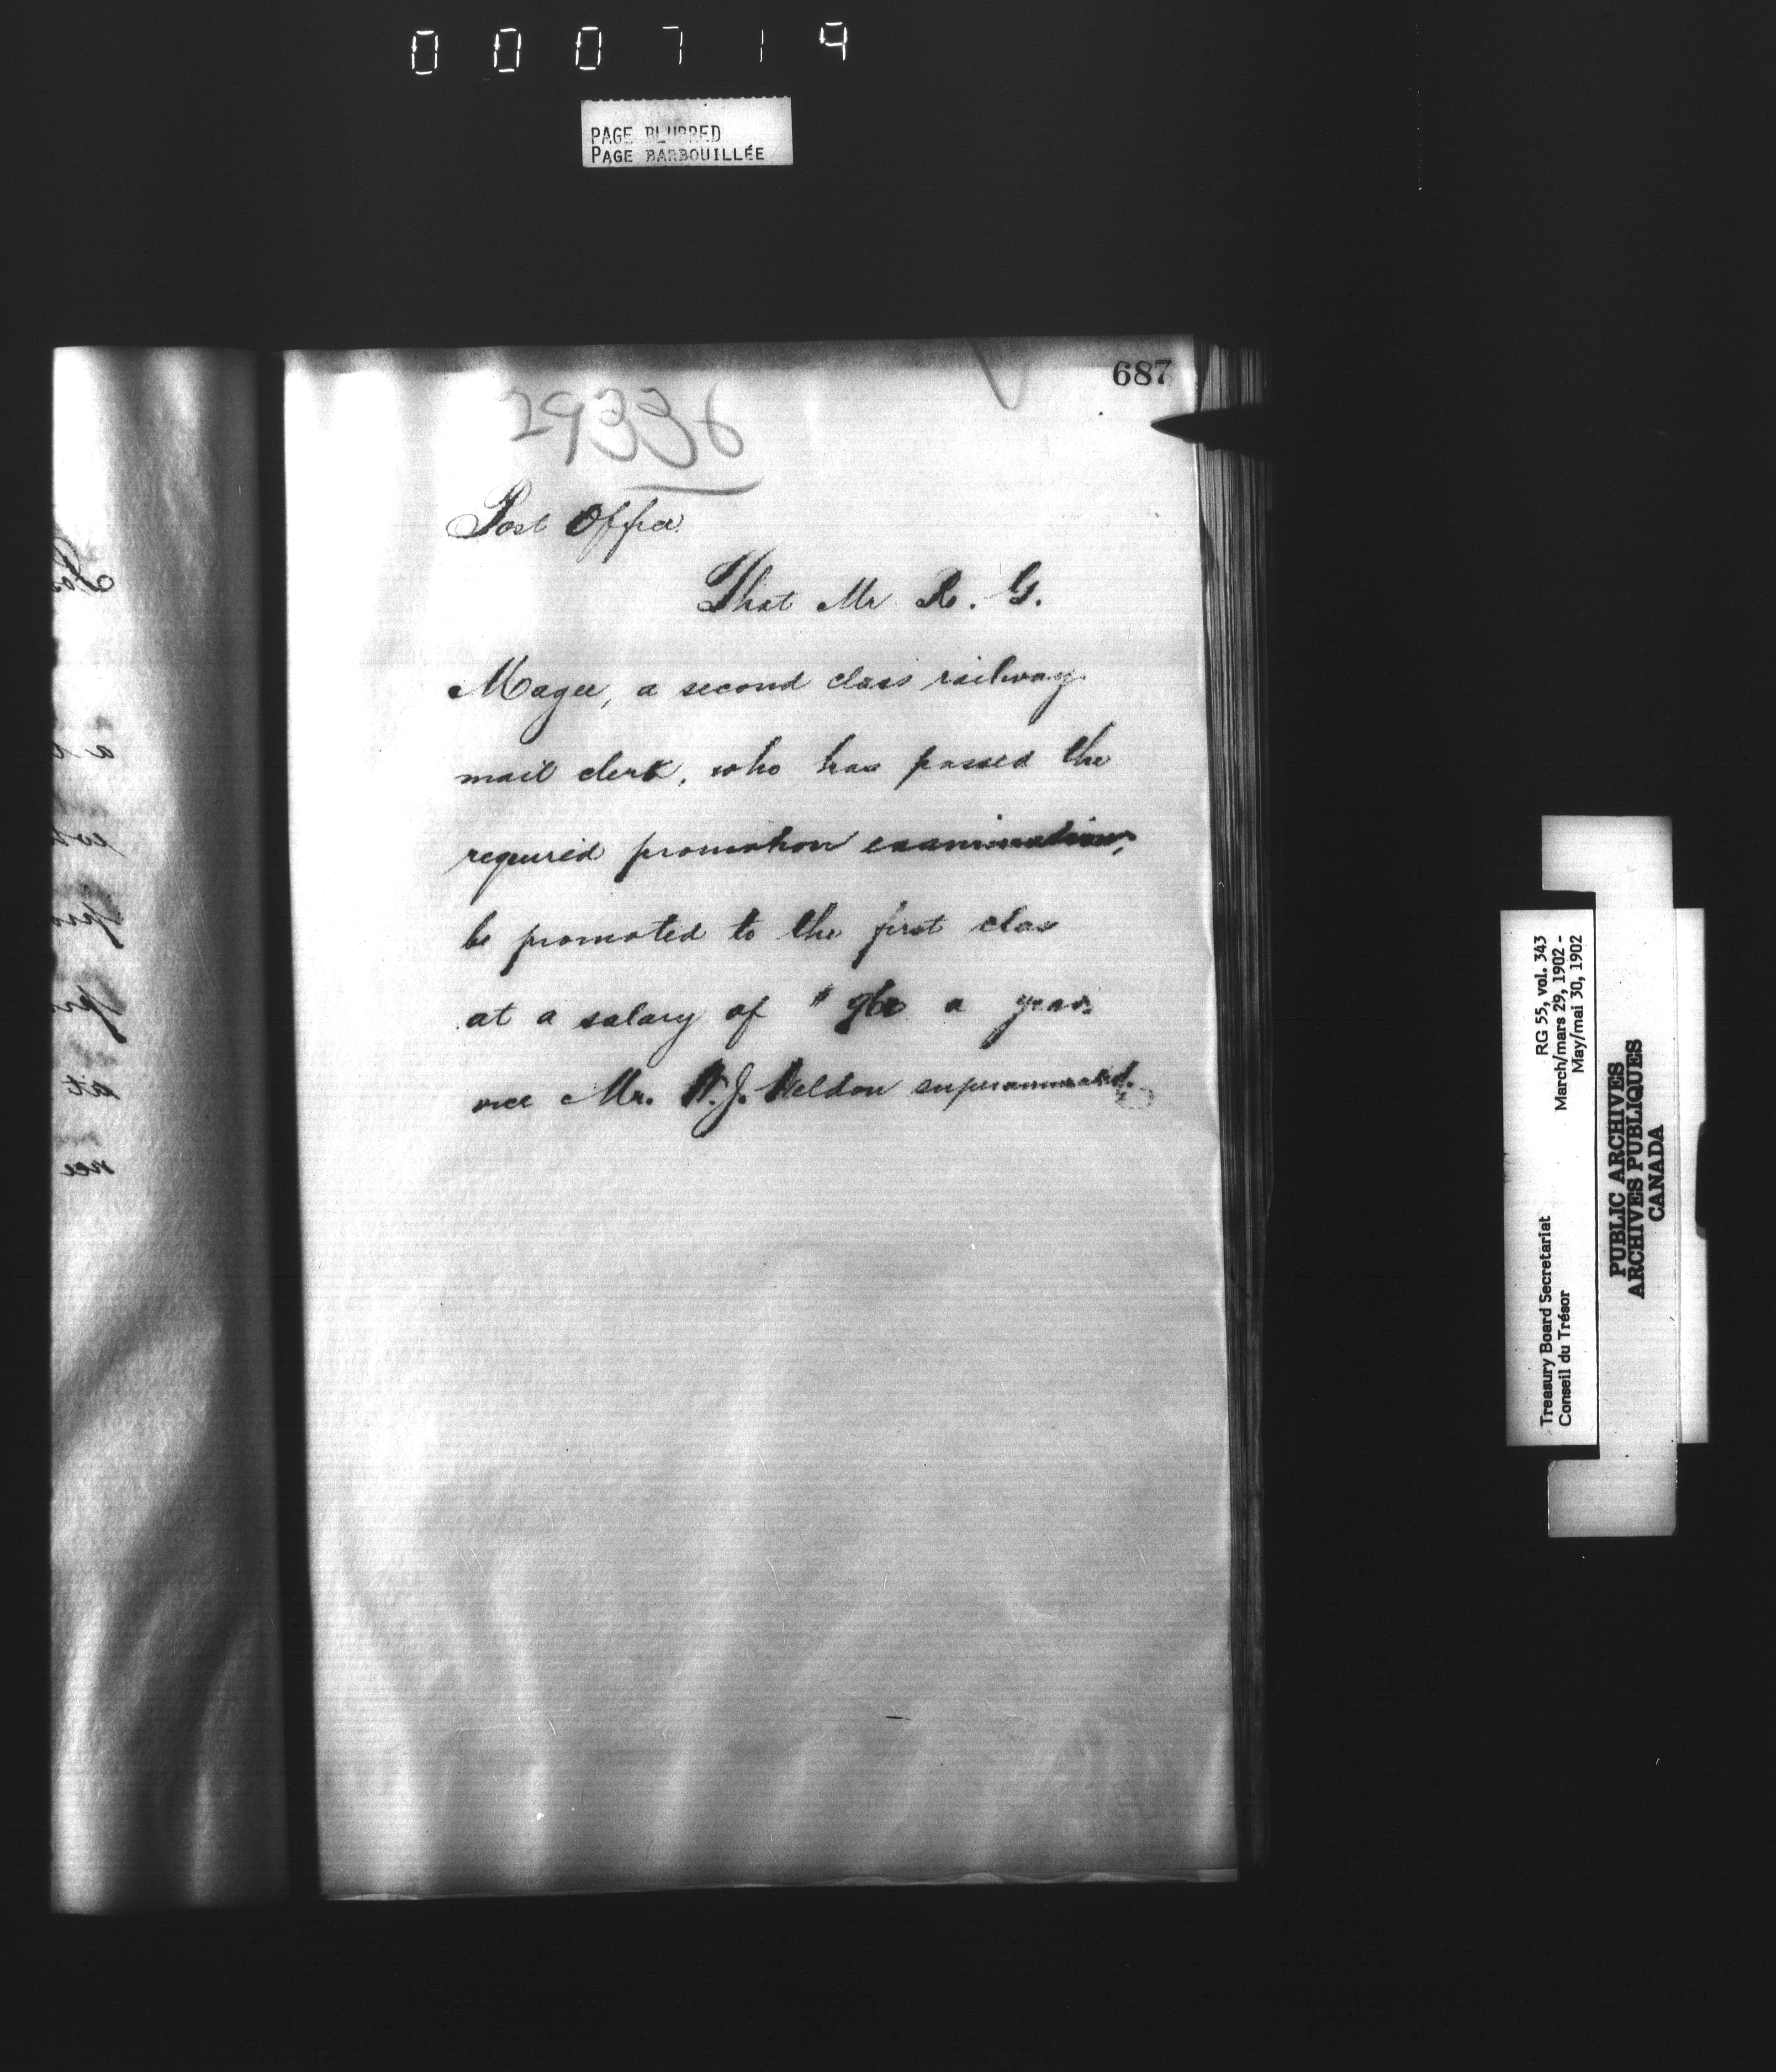 000719
PAGE BLURRED
PAGE BARBOUILLÉE
687
29336
Post Office
That Mr R. G.
Magee, a second class railway
mail clerk, who has passed the
required promotion examination,
be promoted to the first class
at a salary of $960 a year,
vice Mr. W. J. Weldon superannuated.
RG 55, vol. 343
March/mars 29, 1902 -
May/mai 30, 1902
Treasury Board Secretariat
Conseil du Trésor
PUBLIC ARCHIVES
ARCHIVES PUBLIQUES
CANADA